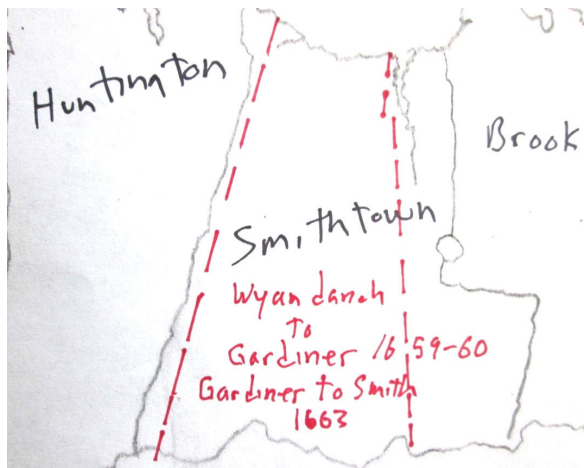 Huntington
Brook
Smithtown
Wyandanch
To
Gardiner 1659-60
Gardiner to Smith
1663